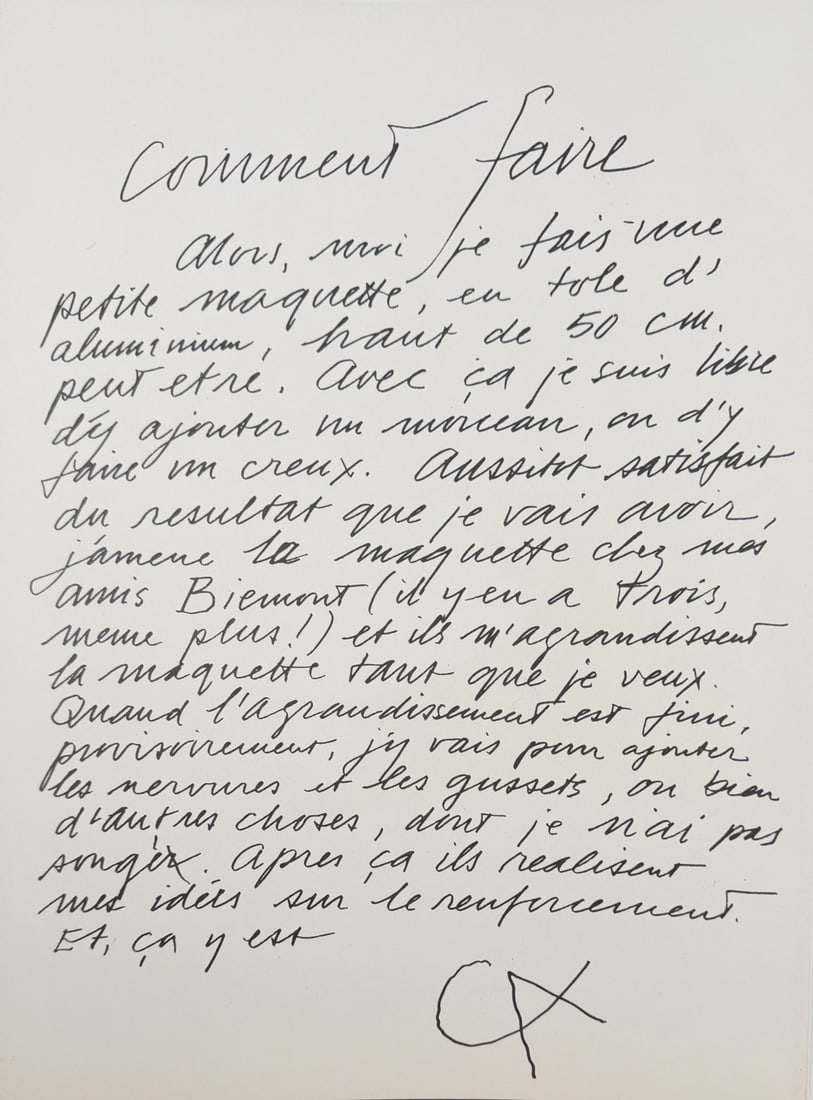 Comment faire
Alors, moi je fais une
petite maquette, en tole d'
aluminium, haut de 50 cm.
peut etre. Avec ça je suis libre
d'y ajouter un morceau, ou d'y
faire un creux. Aussitot satisfait
du resultat que je vais avoir,
j'amene la maquette chez mes
amis Biemont (il y en a trois,
meme plus!) et ils m'agrandissent
la maquette tant que je veux.
Quand l'agrandissement est fini,
provisoirement, j'y vais pour ajouter
les nervures et les gussets, ou bien
d'autres choses, dont je n'ai pas
songé. Apres ça ils realisent
mes idées sur le renforcement.
Et, ça y est
CA